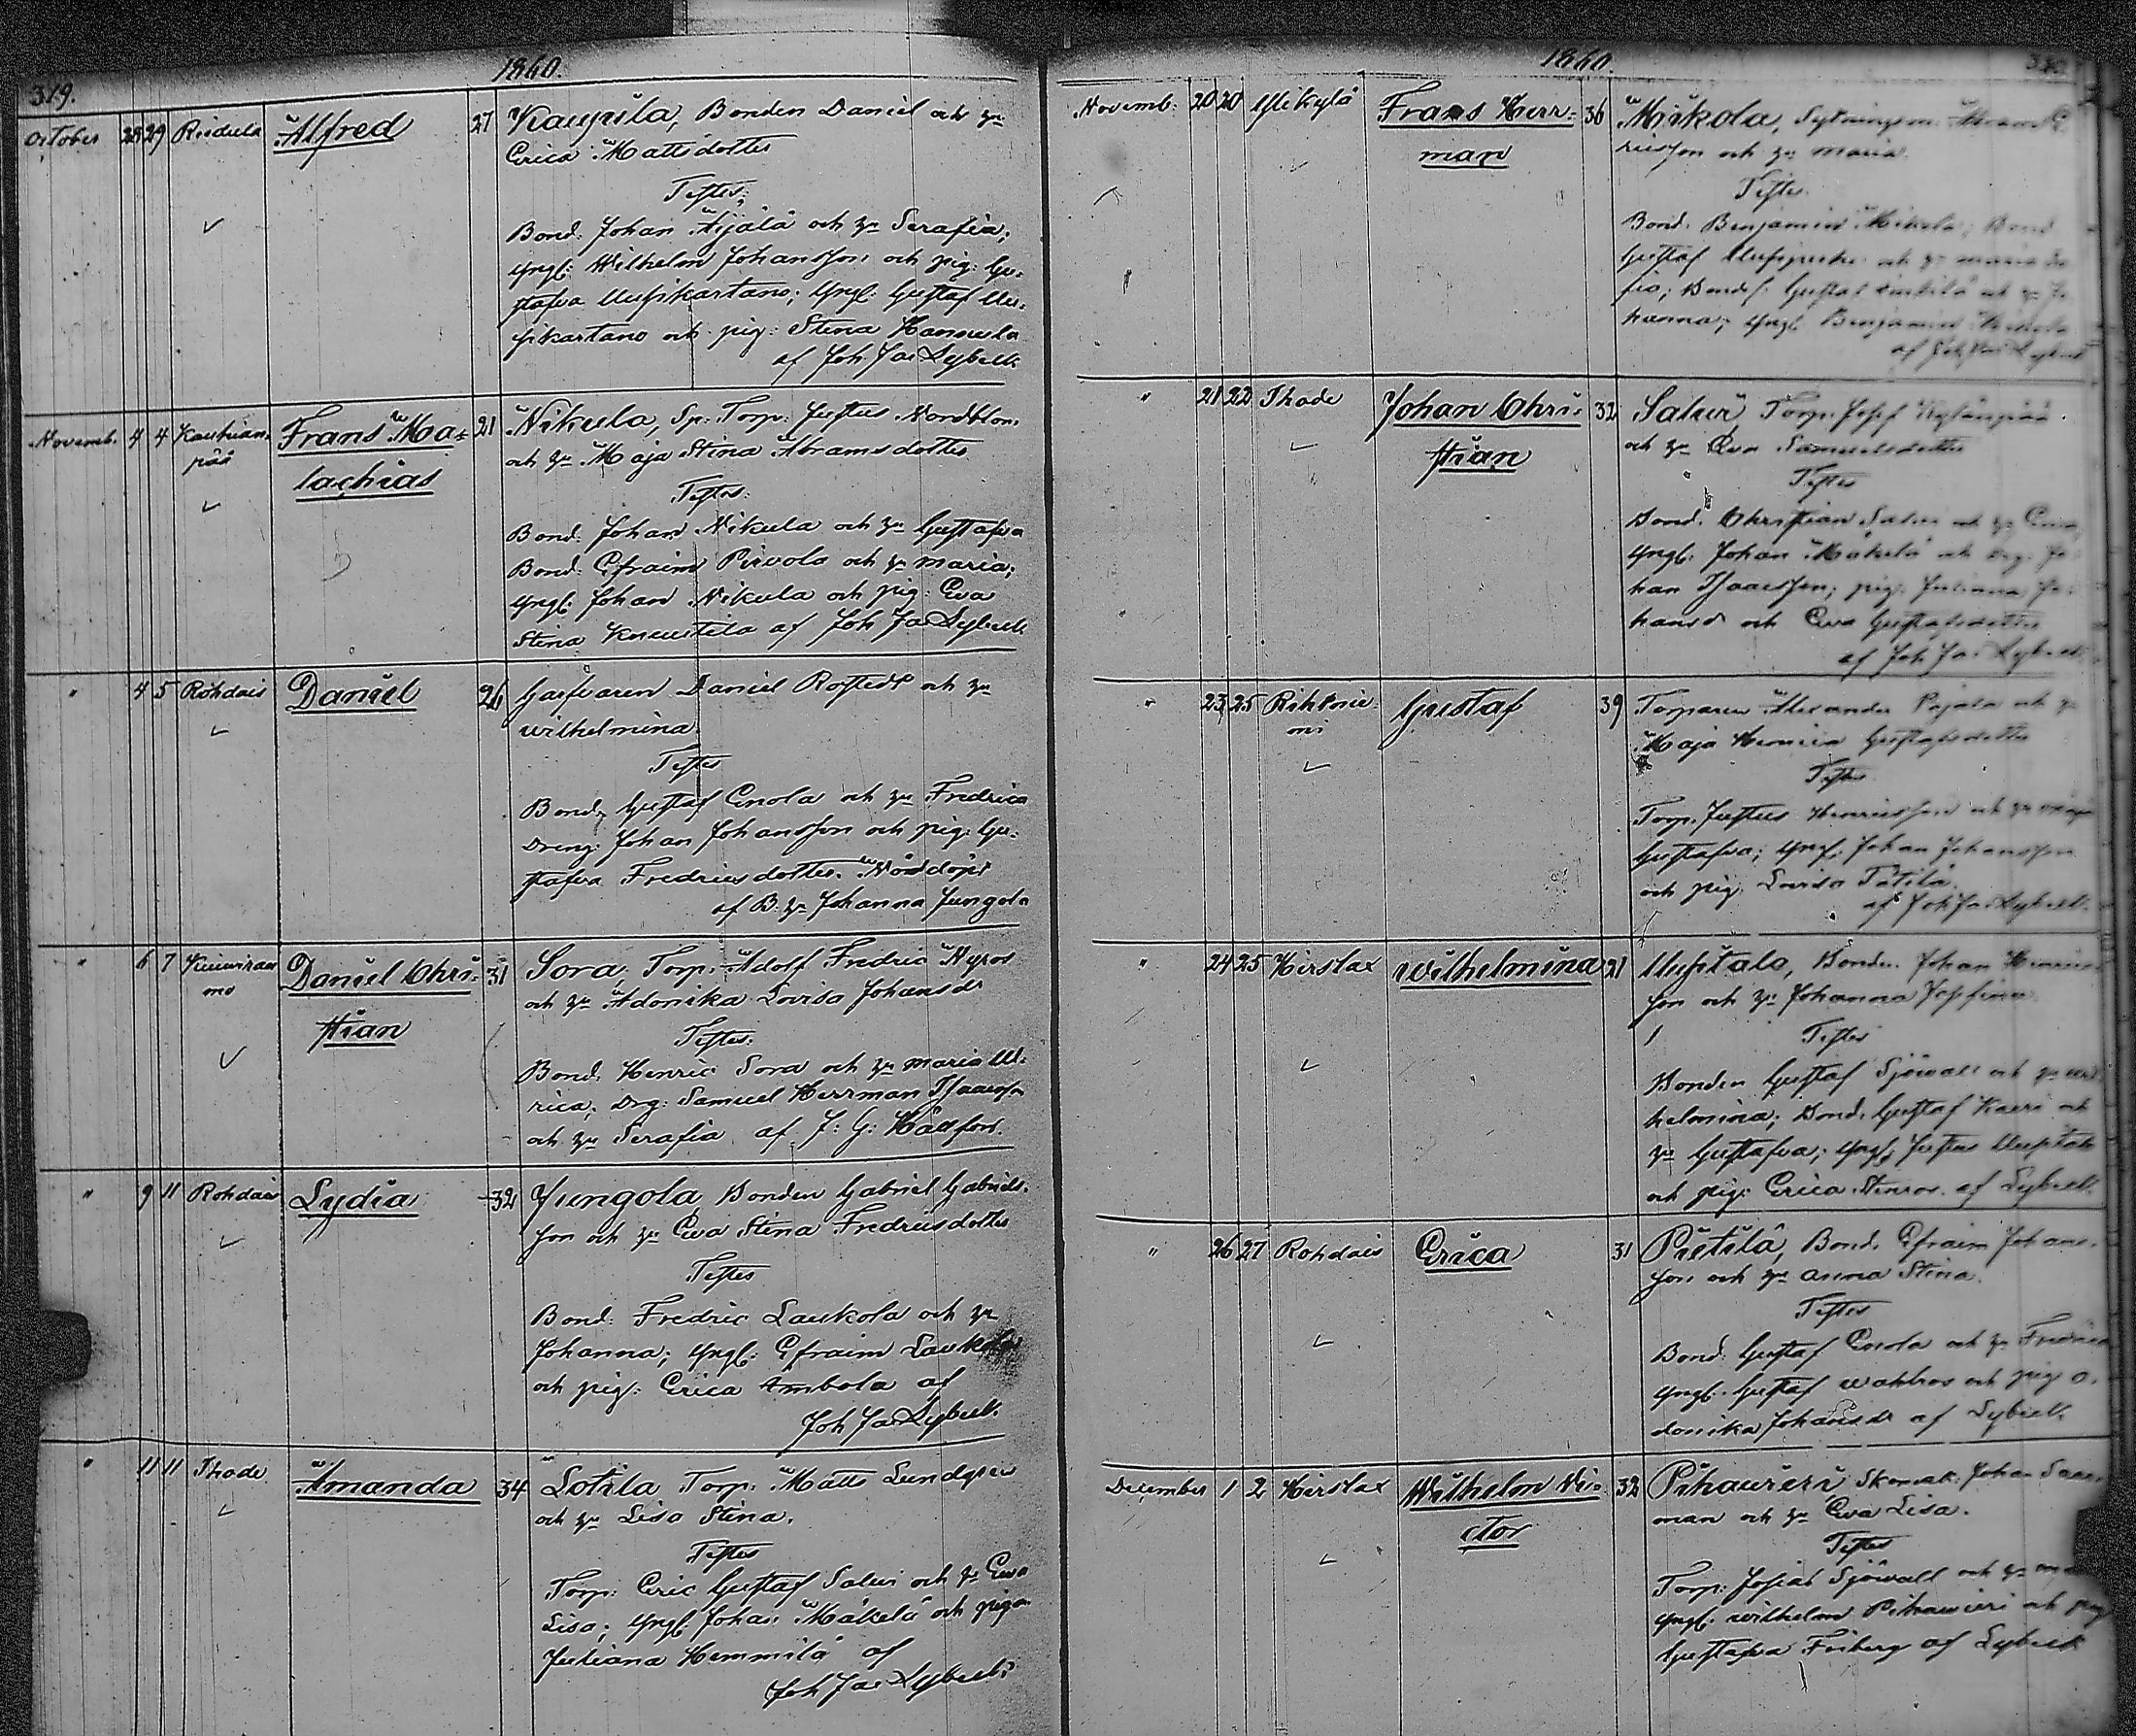 1860.
319.
October 28 29 Riidula Alfred 27 Kaupila, Bonden Daniel och hu
Erica Mattsdotter
Testes:
Bond. Johan Äijälä och hu Serafia;
yngl: Wilhelm Johansson och pig: Gu-
stafva Uusikartano; yngl: Gustaf Uu-
sikartano och pig: Stina Hannula
af Joh. Jac Lybeck
Novemb. 4 4 Kauhian- Frans Ma- 21 Nikula, Sp: Torp: Justus Nordblom
pää lachias och hu Maja Stina Abramsdotter
Testes:
Bond: Johan Nikula och hu Gustafva
Bond: Efraim Pirvola och hu Maria;
yngl: Johan Nikula och pig: Eva
Stina Knuutila af Joh Jac Lybeck
" 4 5 Rohdais Daniel 26 Garfvaren Daniel Rostedt och hu
Wilhelmina
Testes
Bond. Gustaf Enola och hu Fredrica
Dreng: Johan Johansson och pig: Gu-
stafva Fredricsdotter. Nöddöpt
af B. hu Johanna Jungola
" 6 7 Daniel Chri- 31 Sora, Torp: Adolf Fredric Nyroos
mo stian och hu Adonika Lovisa Johansdr
Testes:
Bond. Henric Sora och hu Maria Ul-
rica; Drg: Samuel Herrman Isaacsson
och hu Serafia af J: G: Hällfors.
" 9 11 Rohdais Lydia 32 Jungola Bonden Gabriel Gabriels-
son och hu Eva Stina Fredricsdotter
Testes
Bond: Fredric Laukola och hu
Johanna; yngl: Efraim Laukola
och pig: Erica Ambola af
Joh Jac Lybeck
" 11 11 Thode Amanda 34 Lotila Torp: Matts Lundgren
och hu Lisa Stina.
Testes
Torp: Eric Gustaf Salui och hu Eva
Lisa; yngl Johan Mäkelä och pigan
Juliana Hemmilä af
Joh Jac Lybeck
1860.
Novemb: 20 20 Ylikylä Frans Herr- 36 Mickola, Sytningsm. Abram E-
man ricsson och hu Maria.
Testes.
Bond. Benjamin Mickola; Bond
Gustaf och hu Maria So-
fia; Bonds. Gustaf och hu Jo-
hanna; yngl. Benjamin Mickola
af Joh Jac Lybeck
" 21 22 Thode Johan Chri- 32 Salui Torp. Josef Kylänpää
stian och hu Eva Samuelsdotter
Testes
Bond. Christian Salui och hu Eva
yngl: Johan Mäkelä och drg. Jo-
han Isaacsson; pig: Juliana Jo-
hansd och Eva Gustafsdotter
af Joh Jac Lybeck
" 23 25 Rihtnie- Gustaf 39 Torparen Alexander Pajala och hu
mi Maja Henrica Gustafsdotter
Testes
Torp. Justus Henricsson och hu Maja
Gustafva; yngl: Johan Johansson
och pig. Lovisa Tätilä
af Joh Jac Lybeck
" 24 25 Hirslax Wilhelmina 21 Uusitalo, Bonden Johan Henrics-
son och hu Johanna Josefina
Testes
Bonden Gustaf Sjöwall och hu Wil-
helmina; Bond. Gustaf Kaari och
hu Gustafva; yngl Justus Uusitalo
och pig: Erica Stenroos af Lybeck
" 26 27 Rohdais Erica 31 Pietilä, Bond. Efraim Johans-
son och hu Anna Stina.
Testes
Bond. Gustaf Enola och hu Fredrica
yngl. Gustaf Wahlroos och pig A-
donika Johansdr af Lybeck
December 1 2 Hirslax Wilhelm Vi- 32 Pihavieri Skomak. Johan Saxe-
ctor man och hu Eva Lisa.
Testes
Torp: Josias Sjöwall och hu
yngl. Wilhelm Pihavieri och pig
Gustafva Friberg af Lybeck